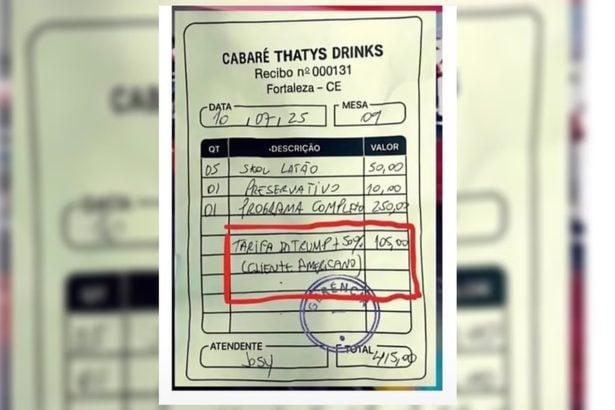 CABARÉ THATYS DRINKS
Recibo nº 000131
Fortaleza – CE
DATA 10 , 07 , 25 MESA 09
QT DESCRIÇÃO VALOR
05 SKOL LATÃO 50,00
01 PRESERVATIVO 10,00
01 PROGRAMA COMPLETO 250,00
TARIFA D TRUMP + 50% 105,00
(CLIENTE AMERICANO)
GERÊNCIA
ATENDENTE TOTAL 415,00